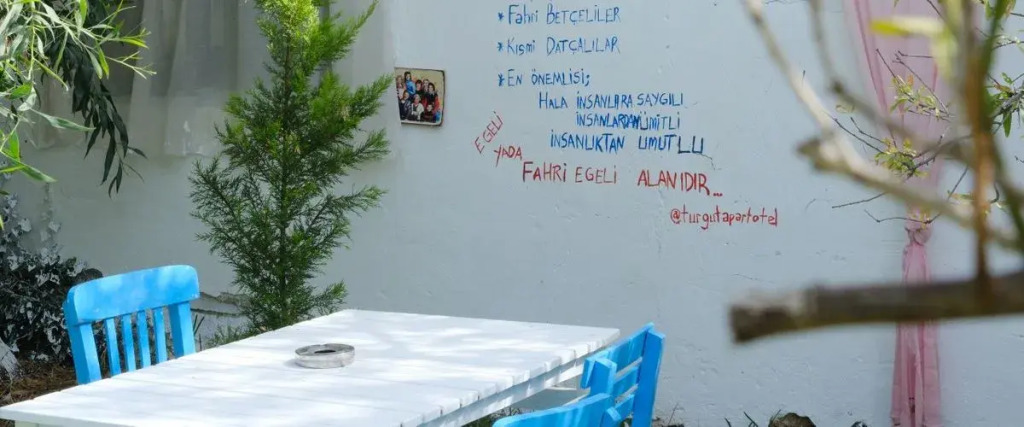 * Fahri BETÇELİLER
* Kısmi DATÇALILAR
* EN ÖNEMLİSİ;
HALA İNSANLARA SAYGILI
İNSANLARDAN ÜMİTLİ
İNSANLIKTAN UMUTLU
EGELİ
YADA
FAHRİ EGELİ ALANIDIR...
@turgutapartotel